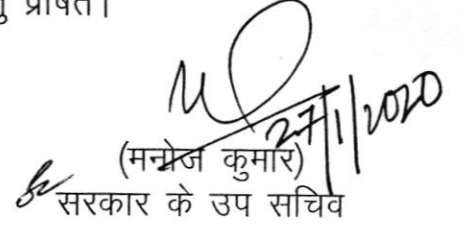 प्रेषित।
27/1/2020
(मनोज कुमार)
सरकार के उप सचिव